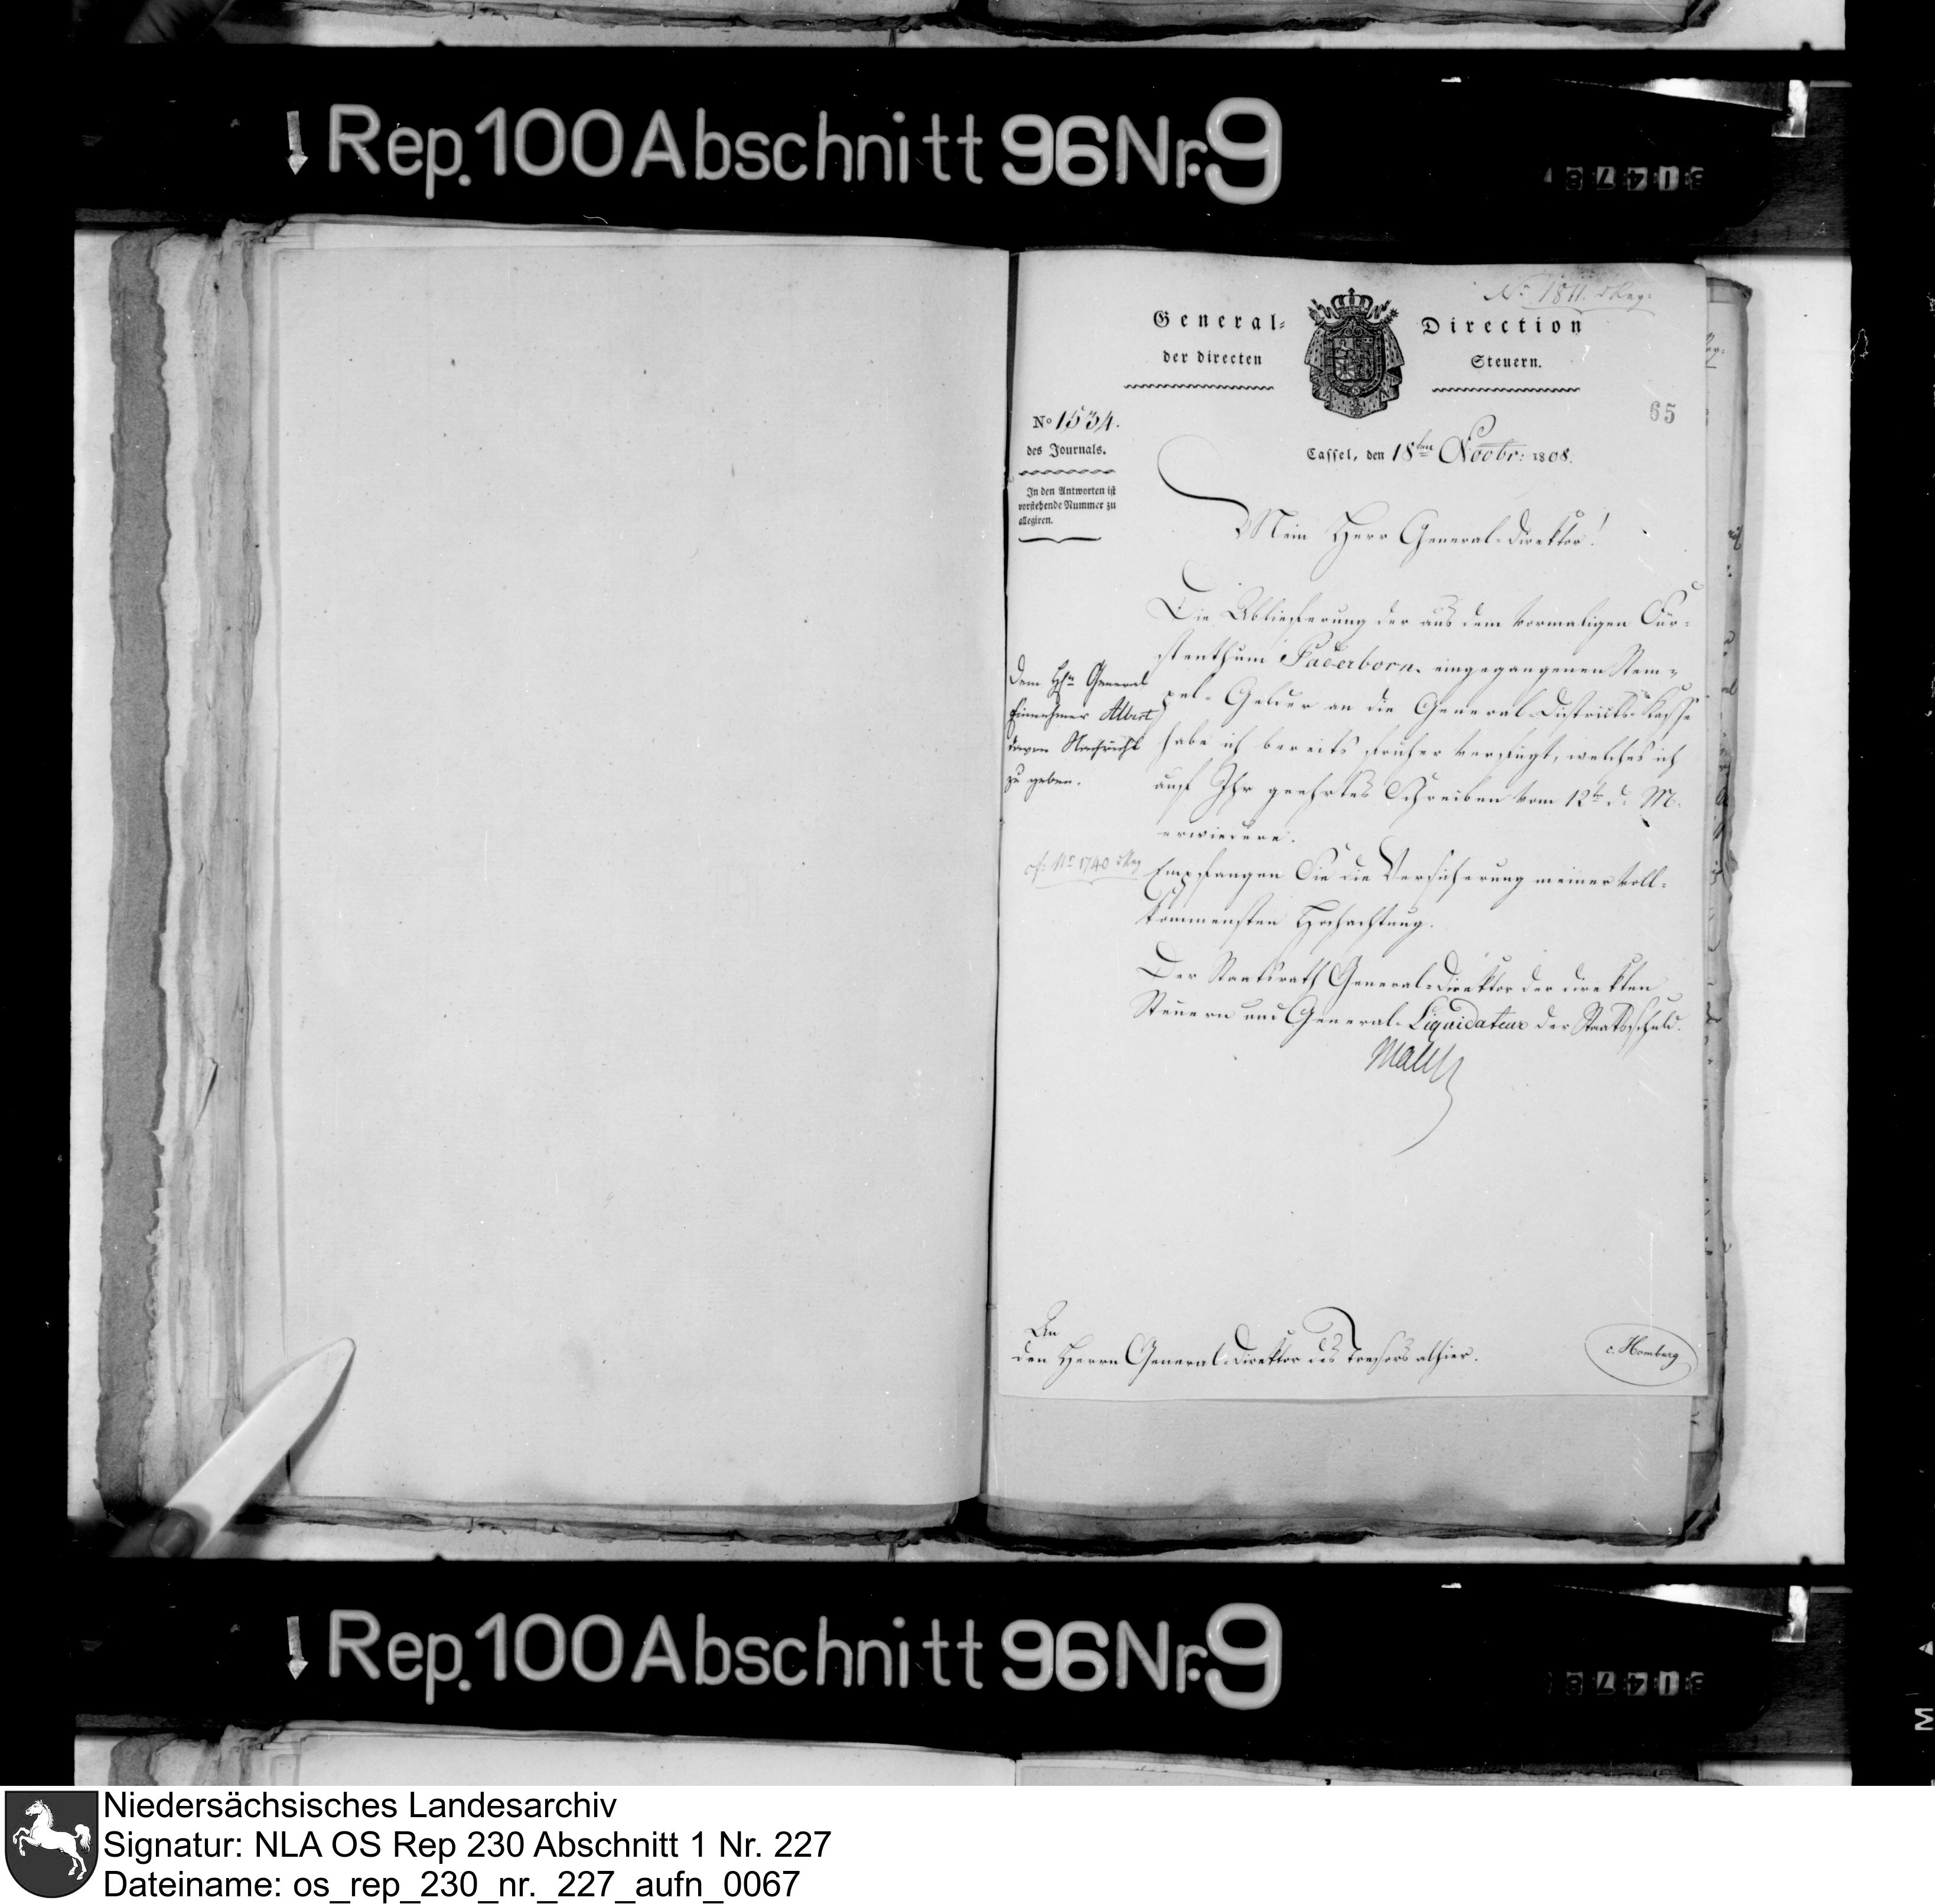 Rep. 100 Abschnitt 96 Nr. 9
No 1811. 
General- Direction
der directen Steuern.
65
No 1534.
des Journals.
In den Antworten ist
vorstehende Nummer zu
allegiren.
Cassel, den 18ten Novbr: 1808.
Mein Herr General-Direktor!
Die Ablieferung der aus dem vormaligen Für-
stenthum Paderborn eingegangenen Stem-
pel-Gelder an die General-Districts-Kasse
habe ich bereits früher verfügt, welches ich
auf Ihr geehrtes Schreiben vom 12ten d. M.
erwiedere.
Empfangen Sie die Versicherung meiner voll-
kommensten Hochachtung.
Der Staatsrath General-Direktor der direkten
Steuern und General-Liquidateur der Staatsschuld.
Dem Hrn General
Einnehmer Albert
davon Nachricht
zu geben.
cf. No 1740
An
den Herrn General-Direktor des Tresors alhier.
c. Homberg
Rep. 100 Abschnitt 96 Nr. 9
M
Niedersächsisches Landesarchiv
Signatur: NLA OS Rep 230 Abschnitt 1 Nr. 227
Dateiname: os_rep_230_nr._227_aufn_0067